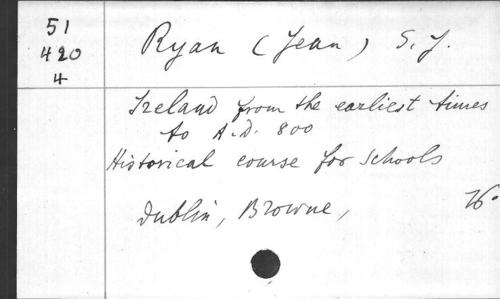 51
420
4
Ryan (Jean) S.J.
Ireland from the earliest times
to A.D. 800
Historical course for schools
Dublin, Browne,